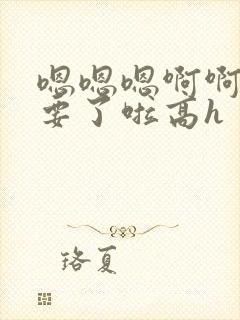 嗯嗯嗯啊啊
要了啦高h
珞夏